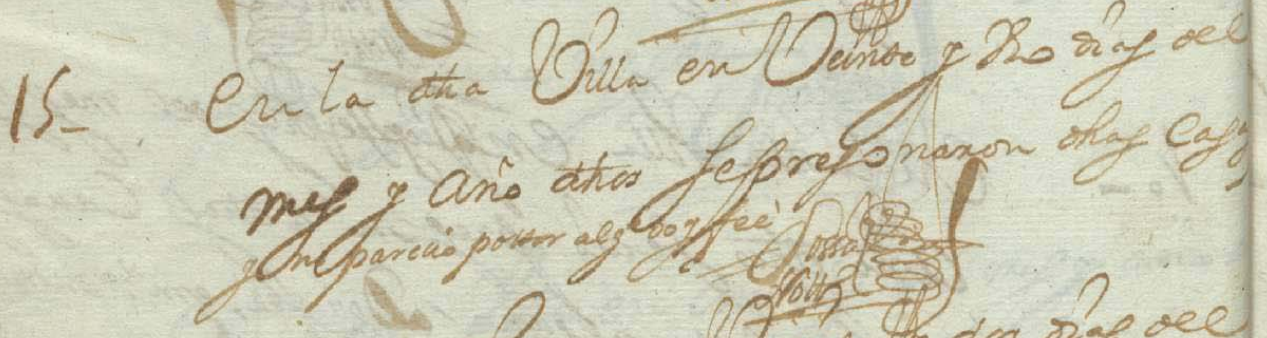 15 En la dha Villa en Veinte y dias del
mes y año dhos se pregonaron dhas casas
y no parecio postor alg.º doy fee
Nott.º
dias del